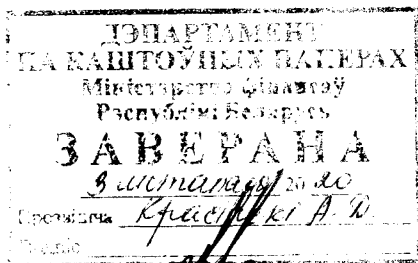 ДЭПАРТАМЕНТ
ПА КАШТОЎНЫХ ПАПЕРАХ
Міністэрства фінансаў
Рэспублікі Беларусь
ЗАВЕРАНА
3 лістапада 2020
Прозвішча А. Д.